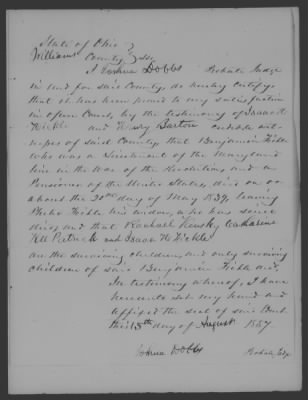 State of Ohio }
Williams County } ss
I Joshua Dobbs Probate Judge
in and for said County, do hereby certify
that it has been proved to my satisfaction
in open Court, by the testimony of Isaac H
Fickle and Henry Barton credible wit-
nesses of said County, that Benjamin Fickle
who was a Lieutenant of the Maryland
line in the War of the Revolution and a
Pensioner of the United States, died on or
about the day of May 1839, leaving
Fickle his widow, who has since
died and that Rachael Catharine
Kill Patrick and Isaac H Fickle
are the surviving children and only surviving
children of said Benjamin Fickle decd,
In testimony whereof, I have
hereunto set my hand and
affixed the seal of said Court
this 13th day of August 1857
Joshua Dobbs Probate Judge